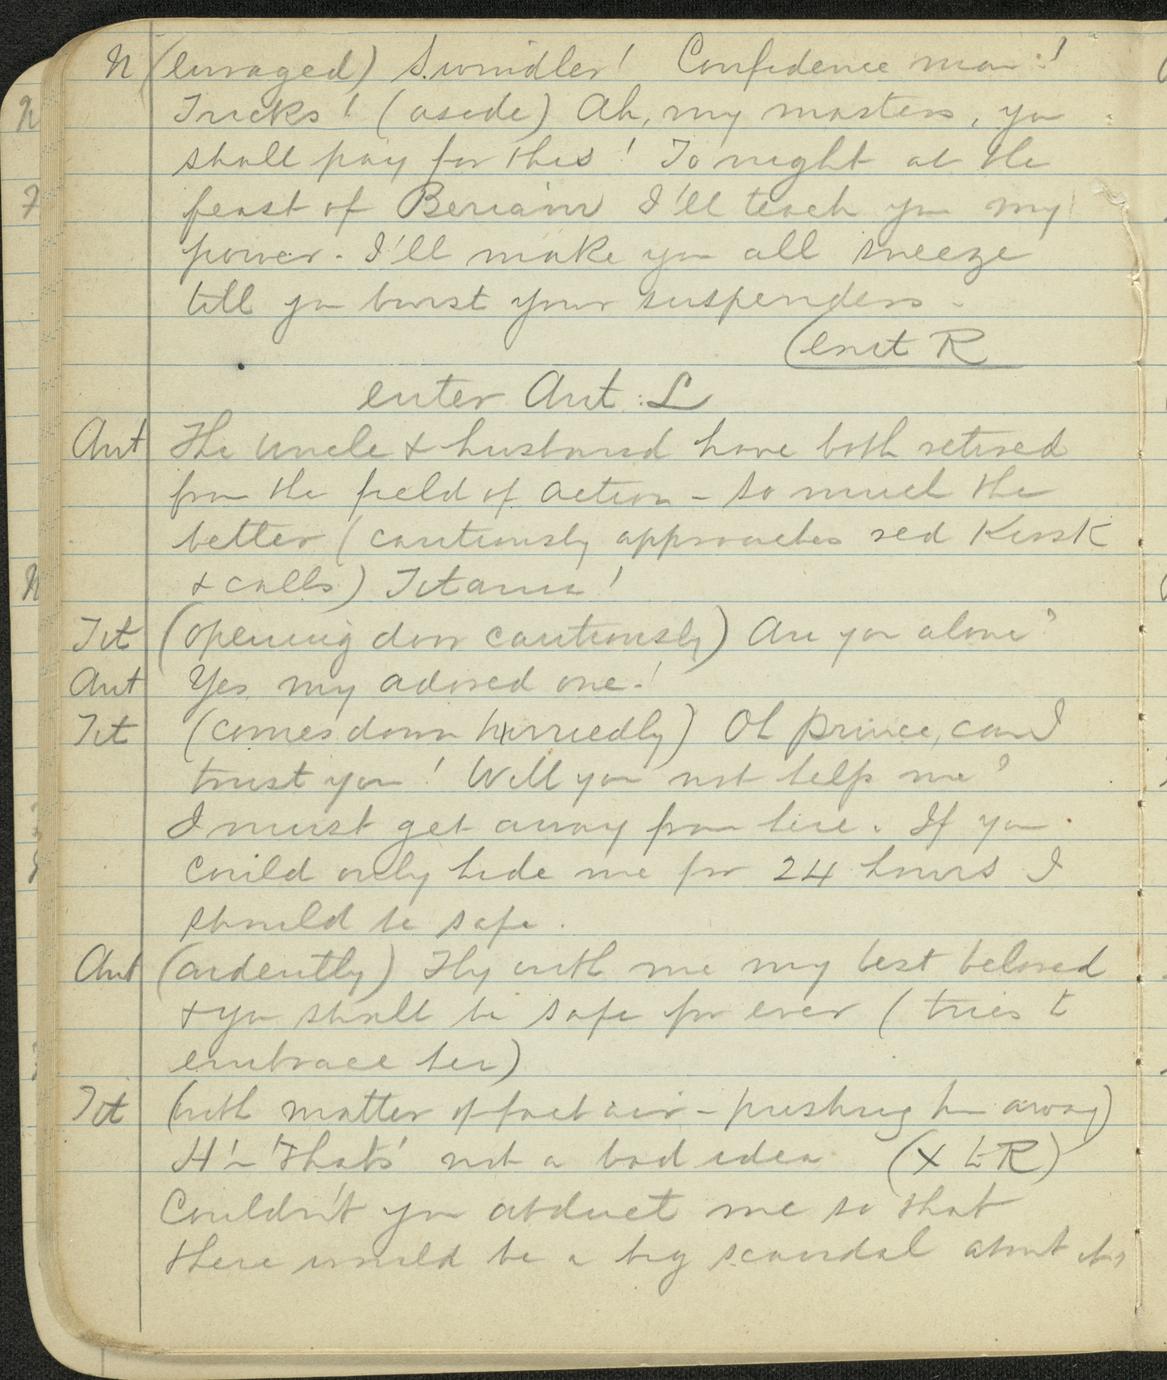 N (enraged) Swindler! Confidence man!
Tricks! (aside) Ah, my masters, you
shall pay for this! To night at the
feast of Beriam I'll teach you my
power. I'll make you all sneeze
till you burst your suspenders.
(exit R
enter Ant. L
Ant The Uncle & husband have both retired
from the field of action - so much the
better (cautiously approaches red Kiosk
& calls) Titania!
Tit (opening door cautiously) Are you alone?
Ant Yes my adored one!
Tit (comes down hurriedly) Oh Prince, can I
trust you! Will you not help me?
I must get away from here. If you
could only hide me for 24 hours I
should be safe.
Ant (ardently) Fly with me my best beloved
& you shall be safe for ever (tries to
embrace her)
Tit (with matter of fact air - pushing him away)
H'm That's not a bad idea (X to R)
Couldn't you abduct me so that
there would be a big scandal about it,